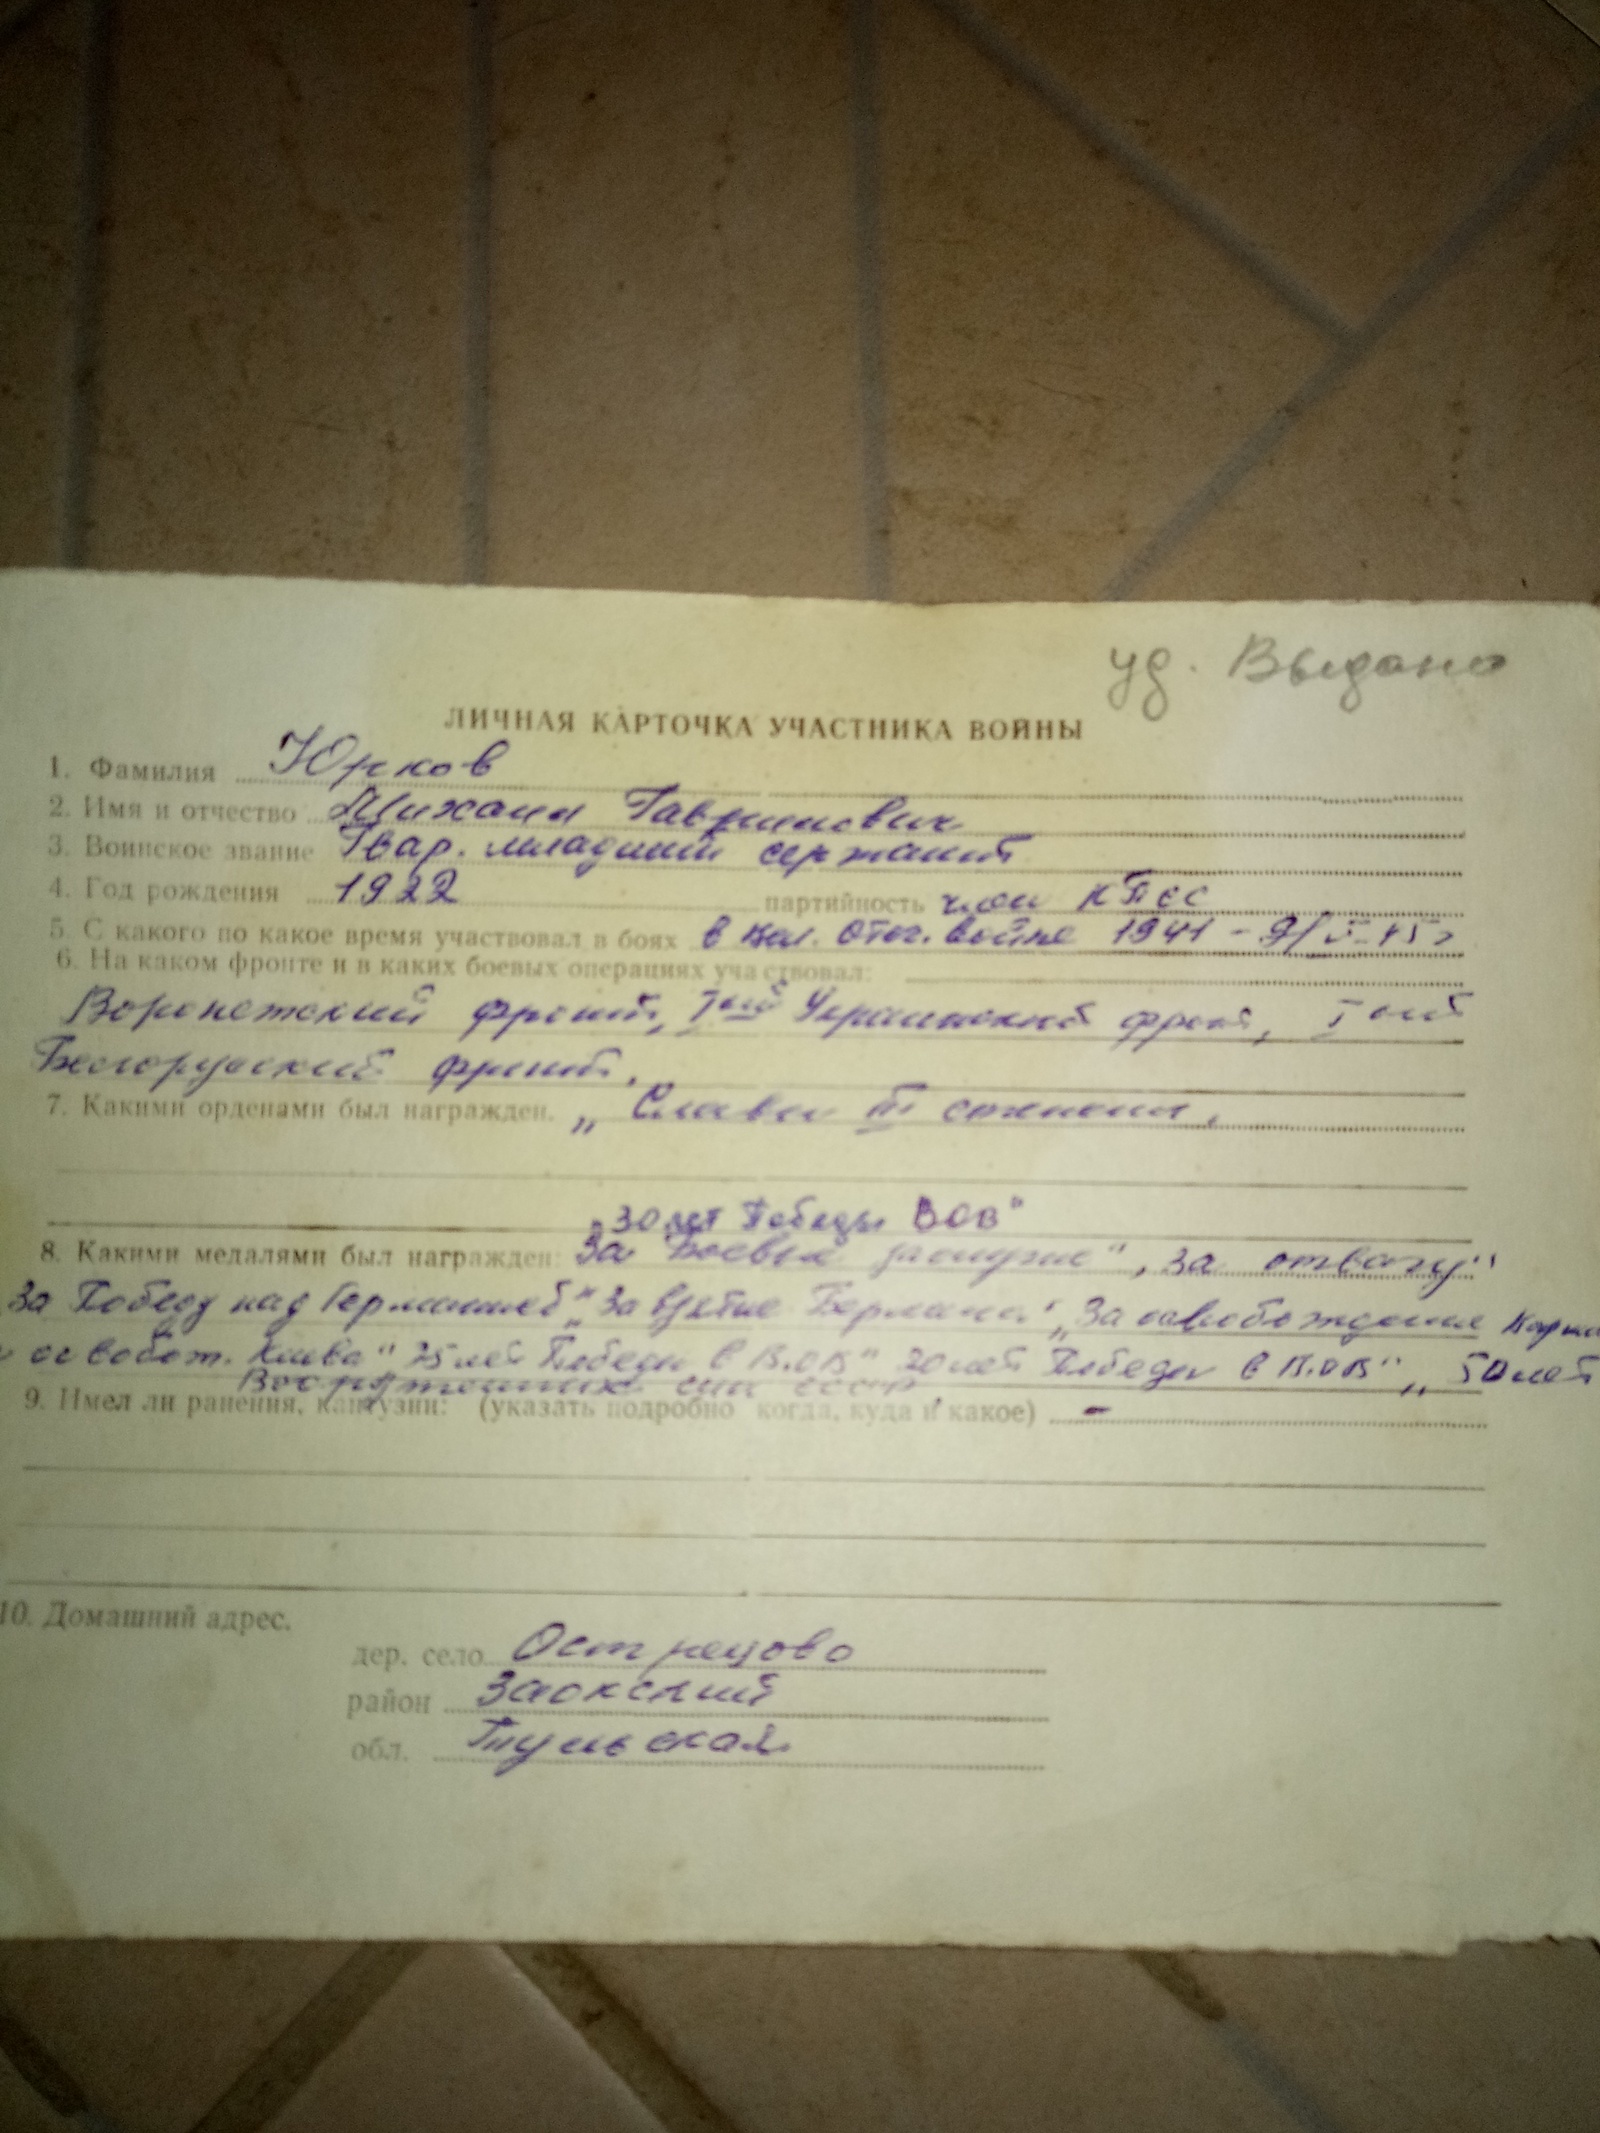 уд. Выдано
ЛИЧНАЯ КАРТОЧКА УЧАСТНИКА ВОЙНЫ
1. Фамилия Юрков
2. Имя и отчество Михаил Гаврилович
3. Воинское звание Гвар. младший сержант
4. Год рождения 1922 партийность член КПСС
5. С какого по какое время участвовал в боях в Вел. Отеч. войне 1941 - 9/V-45г
6. На каком фронте и в каких боевых операциях участвовал:
Воронежский фронт, I ый Украинский фронт, I ый
Белоруский фронт.
7. Какими орденами был награжден. „Славы III степени,
„30 лет Победы ВОВ"
8. Какими медалями был награжден: За Боевые заслуги", за отвагу"
За Победу над Германией" „За взятие „За освобождение
освобож. Киева" 25 лет Победы в В.О.В" 30 лет Победы в В.О.В" „50 лет
Вооруженных сил СССР,
9. Имел ли ранения, контузии: (указать подробно когда, куда и какое) -
10. Домашний адрес.
дер. село Острецово
район Заокский
обл. Тульская